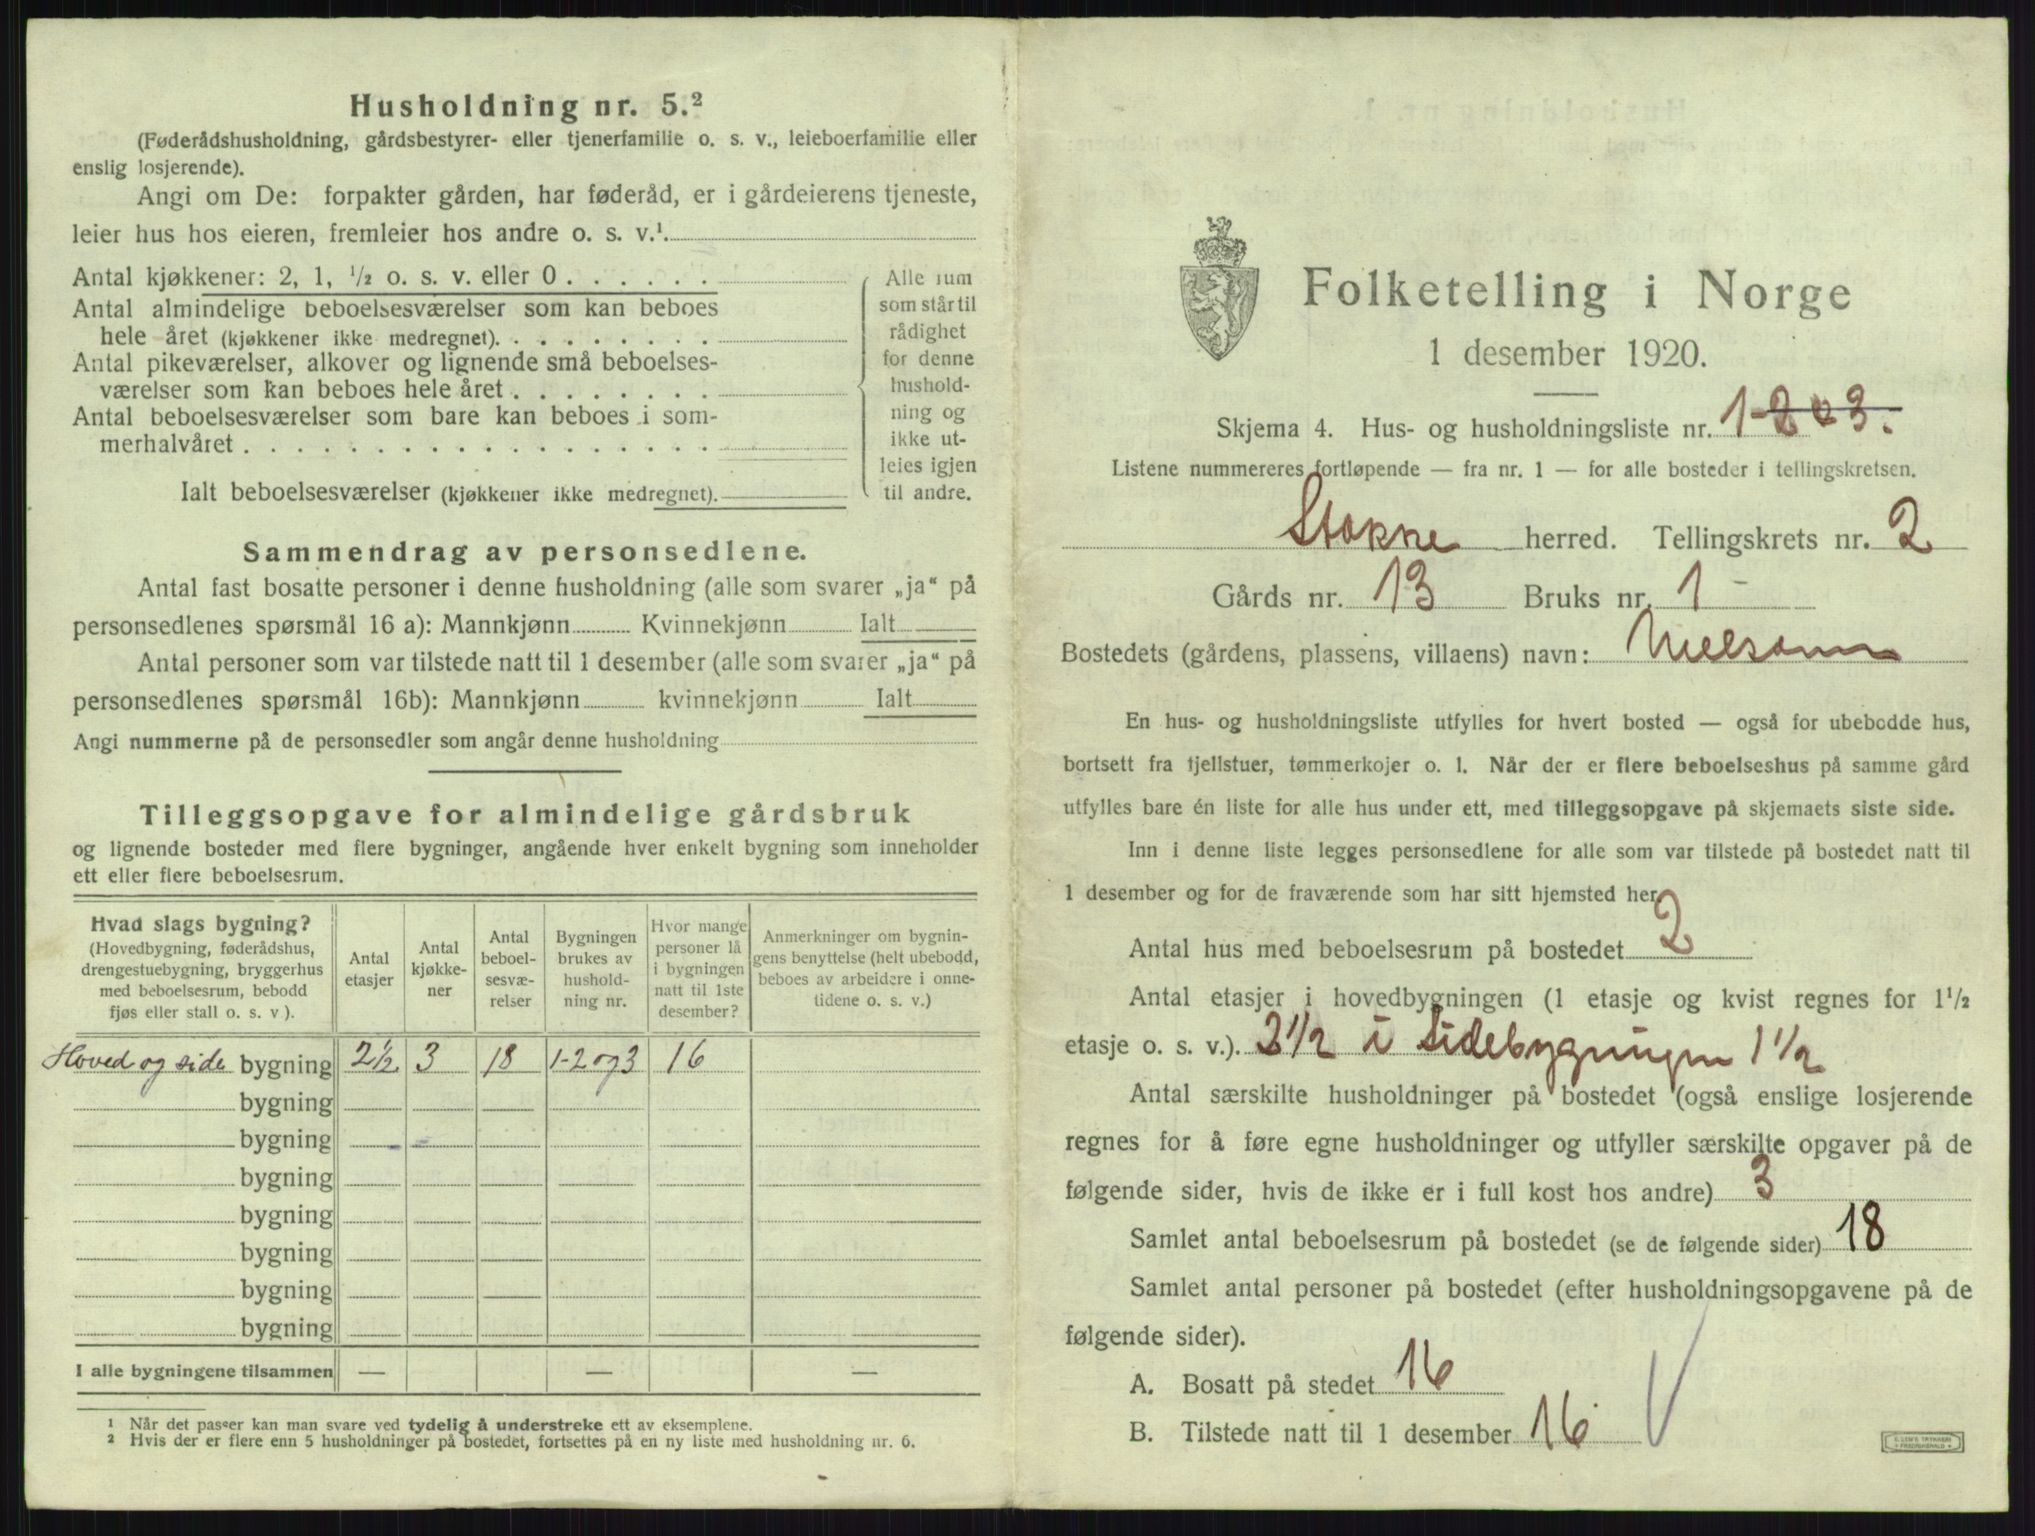 Husholdning nr. 5.²
(Føderådshusholdning, gårdsbestyrer- eller tjenerfamilie o. s. v., leieboerfamilie eller
enslig losjerende).
Angi om De: forpakter gården, har føderåd, er i gårdeierens tjeneste,
leier hus hos eieren, fremleier hos andre o. s. v.¹.
Antal kjøkkener: 2, 1, ½ o. s. v. eller 0 . . . . . .
Antal almindelige beboelsesværelser som kan beboes
hele året (kjøkkener ikke medregnet). . . . . . . . .
Antal pikeværelser, alkover og lignende små beboelses-
værelser som kan beboes hele året . . . . . . . .
Antal beboelsesværelser som bare kan beboes i som-
merhalvåret . . . . . . . . . . . . . . . . . .
Ialt beboelsesværelser (kjøkkener ikke medregnet).
Alle rum
som står til
rådighet
for denne
hushold-
ning og
ikke ut-
leies igjen
til andre.
Sammendrag av personsedlene.
Antal fast bosatte personer i denne husholdning (alle som svarer „ja“ på
personsedlenes spørsmål 16 a): Mannkjønn Kvinnekjønn Ialt
Antal personer som var tilstede natt til 1 desember (alle som svarer „ja“ på
personsedlenes spørsmål 16b): Mannkjønn kvinnekjønn Ialt
Angi nummerne på de personsedler som angår denne husholdning
Tilleggsopgave for almindelige gårdsbruk
og lignende bosteder med flere bygninger, angående hver enkelt bygning som inneholder
ett eller flere beboelsesrum.
Hvad slags bygning?
(Hovedbygning, føderådshus,
drengestuebygning, bryggerhus
med beboelsesrum, bebodd
fjøs eller stall o. s. v ).
Antal
etasjer
Antal
kjøkke-
ner
Antal
beboel-
sesvæ-
relser
Bygningen
brukes av
hushold-
ning nr.
Hvor mange
personer lå
i bygningen
natt til 1ste
desember?
Anmerkninger om bygnin-
gens benyttelse (helt ubebodd,
beboes av arbeidere i onne-
tidene o. s. v.)
Hoved og side bygning 2½ 3 18 1-2 og 3 16
bygning
bygning
bygning
bygning
bygning
bygning
bygning
I alle bygningene tilsammen — — —
¹ Når det passer kan man svare ved tydelig å understreke ett av eksemplene.
² Hvis der er flere enn 5 husholdninger på bostedet, fortsettes på en ny liste med husholdning nr. 6.
Folketelling i Norge
1 desember 1920.
Skjema 4. Hus- og husholdningsliste nr. 1-2 3.
Listene nummereres fortløpende — fra nr. 1 — for alle bosteder i tellingskretsen.
Stokke herred. Tellingskrets nr. 2
Gårds nr. 13 Bruks nr. 1
Bostedets (gårdens, plassens, villaens) navn:
En hus- og husholdningsliste utfylles for hvert bosted — også for ubebodde hus,
bortsett fra fjellstuer, tømmerkojer o. l. Når der er flere beboelseshus på samme gård
utfylles bare én liste for alle hus under ett, med tilleggsopgave på skjemaets siste side.
Inn i denne liste legges personsedlene for alle som var tilstede på bostedet natt til
1 desember og for de fraværende som har sitt hjemsted her.
Antal hus med beboelsesrum på bostedet 2
Antal etasjer i hovedbygningen (1 etasje og kvist regnes for 1½
etasje o. s. v.). 2½ i Sidebygningen 1½
Antal særskilte husholdninger på bostedet (også enslige losjerende
regnes for å føre egne husholdninger og utfyller særskilte opgaver på de
følgende sider, hvis de ikke er i full kost hos andre) 3
Samlet antal beboelsesrum på bostedet (se de følgende sider) 18
Samlet antal personer på bostedet (efter husholdningsopgavene på de
følgende sider).
A. Bosatt på stedet 16
B. Tilstede natt til 1 desember 16